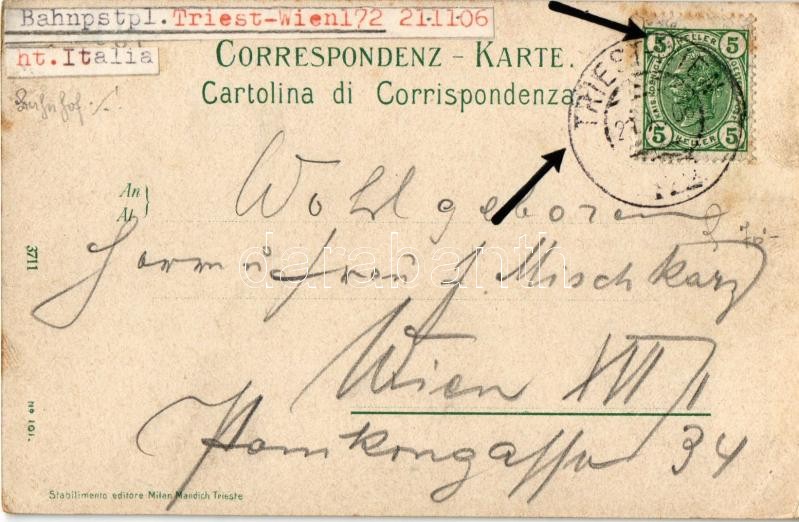 Bahnpstpl. Triest-Wien172 21.11.06
ht. Italia
Bahnhof :/!
CORRESPONDENZ - KARTE.
Cartolina di Corrispondenza
5 HELLER 5
5 HELLER 5
TRIEST WIEN
21
172
An
At
Wohlgeboren
Herrn u Frau J. Mischkarz
Wien XIII/1
34
3711
No 101.
darabanth
Stabilimento editore Milan Mandich Trieste